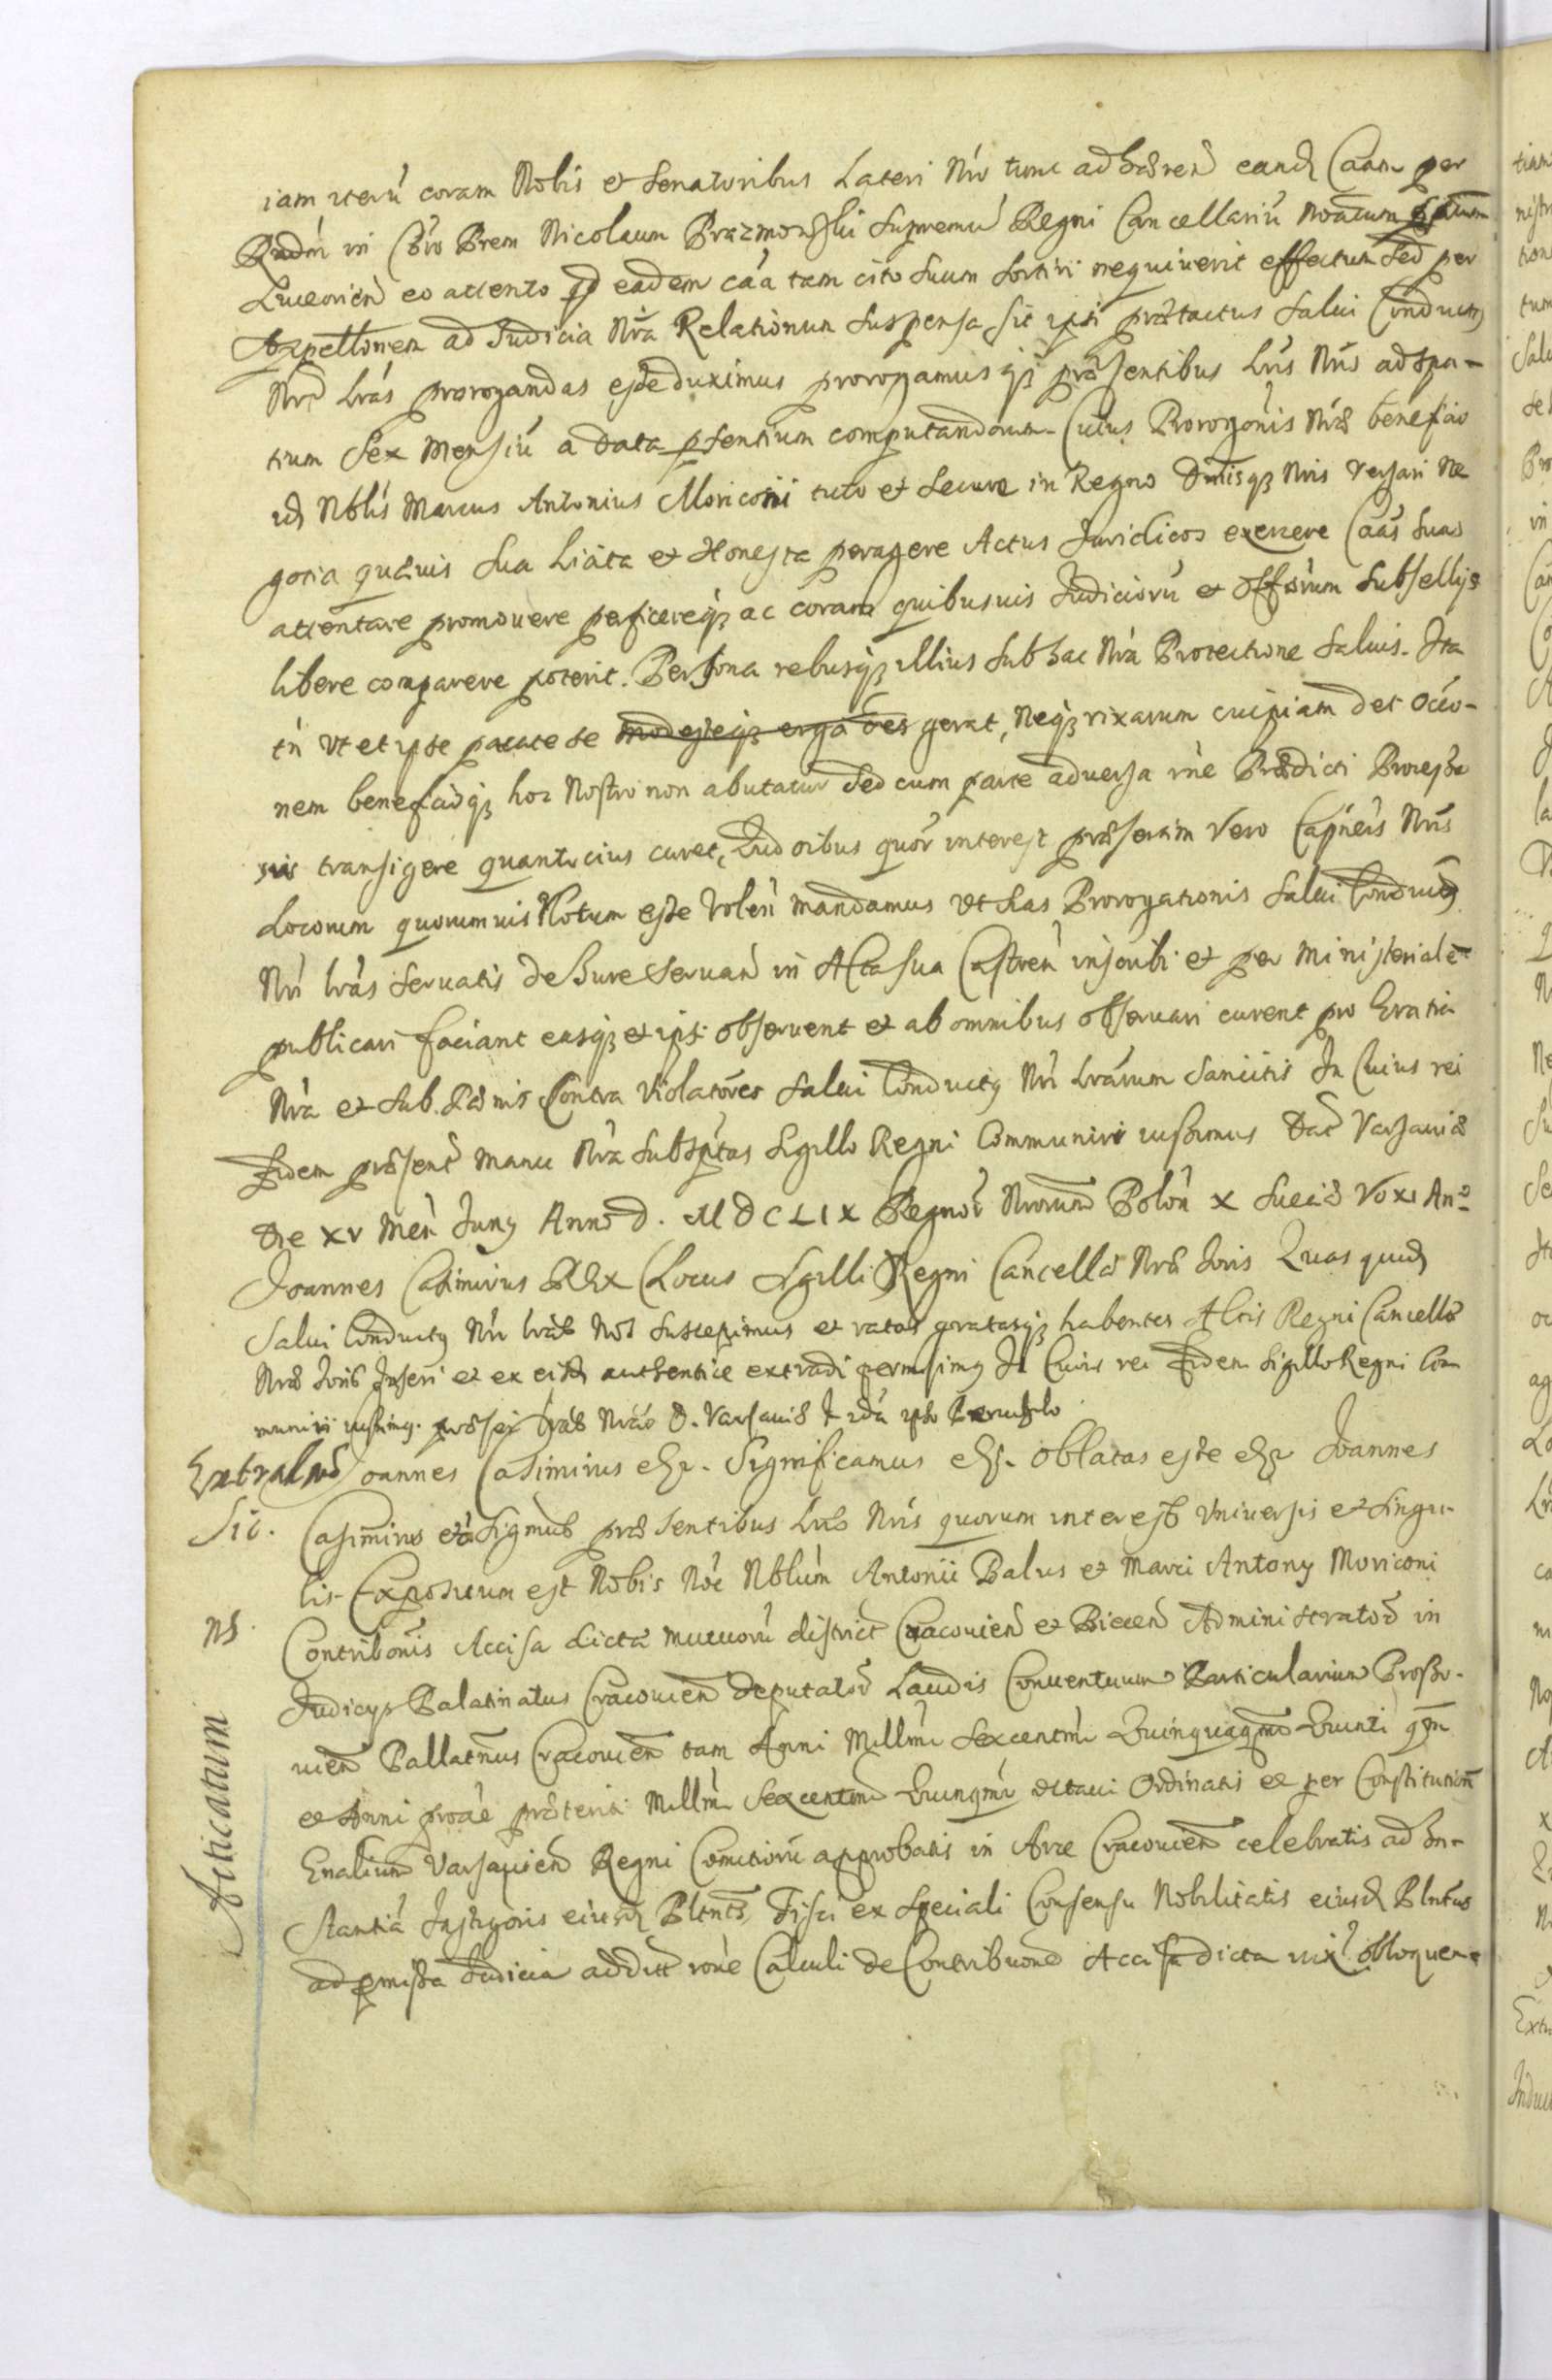 iam iterũ coram Nobis et Senatoribus Lateri Nro tunc adhæreñ eand Caam per
Rndm in Chro Prem Nicolaum Prazmowski Supremũ Regni Cancellariũ
Luceorien eo attento qd eadem caa tam cito Suum Sortiri nequiverit effectum Sed per
Appellonem ad Judicia Nra Relationum Suspensa sit ipsi prætactus Salui Conductus
Nri Lras prorogandas esse duximus prorogamus q; præsentibus Lris Nris ad spa-
tium Sex Mensiũ a data psentium computandorum. Cuius Prorogonis Nræ beneficio
id Nblis Marcus Antonius Moriconi tuto et Secure in Regno Dniisq; Nris versari Ne
gotia quæuis Sua Licita et Honesta peragere Actus Juridicos exercere Caas Suas
attentare promouere perficereq; ac coram quibusuis Judiciorũ et Offiorum Subsellijs
libere comparere poterit. Persona rebusq; illius Sub hac Nra Protectione Saluis. Ita
tn vt et ipse pacate se modesteq; erga oes gerat, Neq; rixarum cuipiam det occo-
nem beneficioq; hoc Nostro non abutatur Sed cum parte aduersa rne Prædicti Processus
transigere quantocius curet, Quod oibus quor interest præsertim Vero Capneis Nris
Locorum quorumuis Notum esse Volen mandamus vt has Prorogationis Salui Conductus
Nri Lras Seruatis de Jure Seruand in Acta Sua Castren inscribi et per Ministerialẽ
publicari faciant easq; et ipsi obseruent et ab omnibus obseruari curent pro Gratia
Nra et Sub Pænis Contra Violatores Salui Conductus Nri Lrarum Sancitis In Cuius rei
Fidem præsent manu Nra Subsptas Sigillo Regni Communiri iussimus Dat Varsauiæ
Die XV Men Juny Anno D. MDCLIX Regnor Nrorum Polon X Sueciæ Vo XI Anº
Joannes Casimirus REx (Locus Sigilli) Regni Cancellæ Nræ Joris Quas quid
Salui Conductus Nri Lras Nos Suscepimus et ratas gratasq; habentes Actis Regni Cancellæ
Nræ Joris Inseri et ex eisd authentice extradi permisimus In Cuius rei Fidem Sigillo Regni Com
muniri iussimus. D. Varsauiæ
Joannes Casimirus etc. Significamus etc. Oblatas esse etc Joannes
Sic. Casimirus etca Sigmus præsentibus Lris Nris quorum interest Vniuersis et Singu-
lis. Expositum est Nobis Noe Nblium Antonii Balus et Marci Antony Moriconi
NB. Contribonis Accisa dicta mutuorũ district Cracouien et Biecen Administrator in
Judicys Palatinatus Cracouien deputator Laudis Conuentuum Particularium Prosso-
uien Pallatnus Cracouien tam Anni Millmi Sexcentmi Quinquagmi Quinti qm
et Anni præteriti Millmi Sexcentmi Quinqmi octaui Ordinatis et per Constitution
Gnalium Varsauien Regni Comitiorũ approbatis in Arce Cracouien celebratis ad In-
stantiã Instigoris eiusd Pltnts Fisci ex Speciali Consensu Nobilitatis eiusd Pltntus
ad pmissa Judicia addict rone Calculi de Contribuone Accisa dicta obloquen-
Acticatum